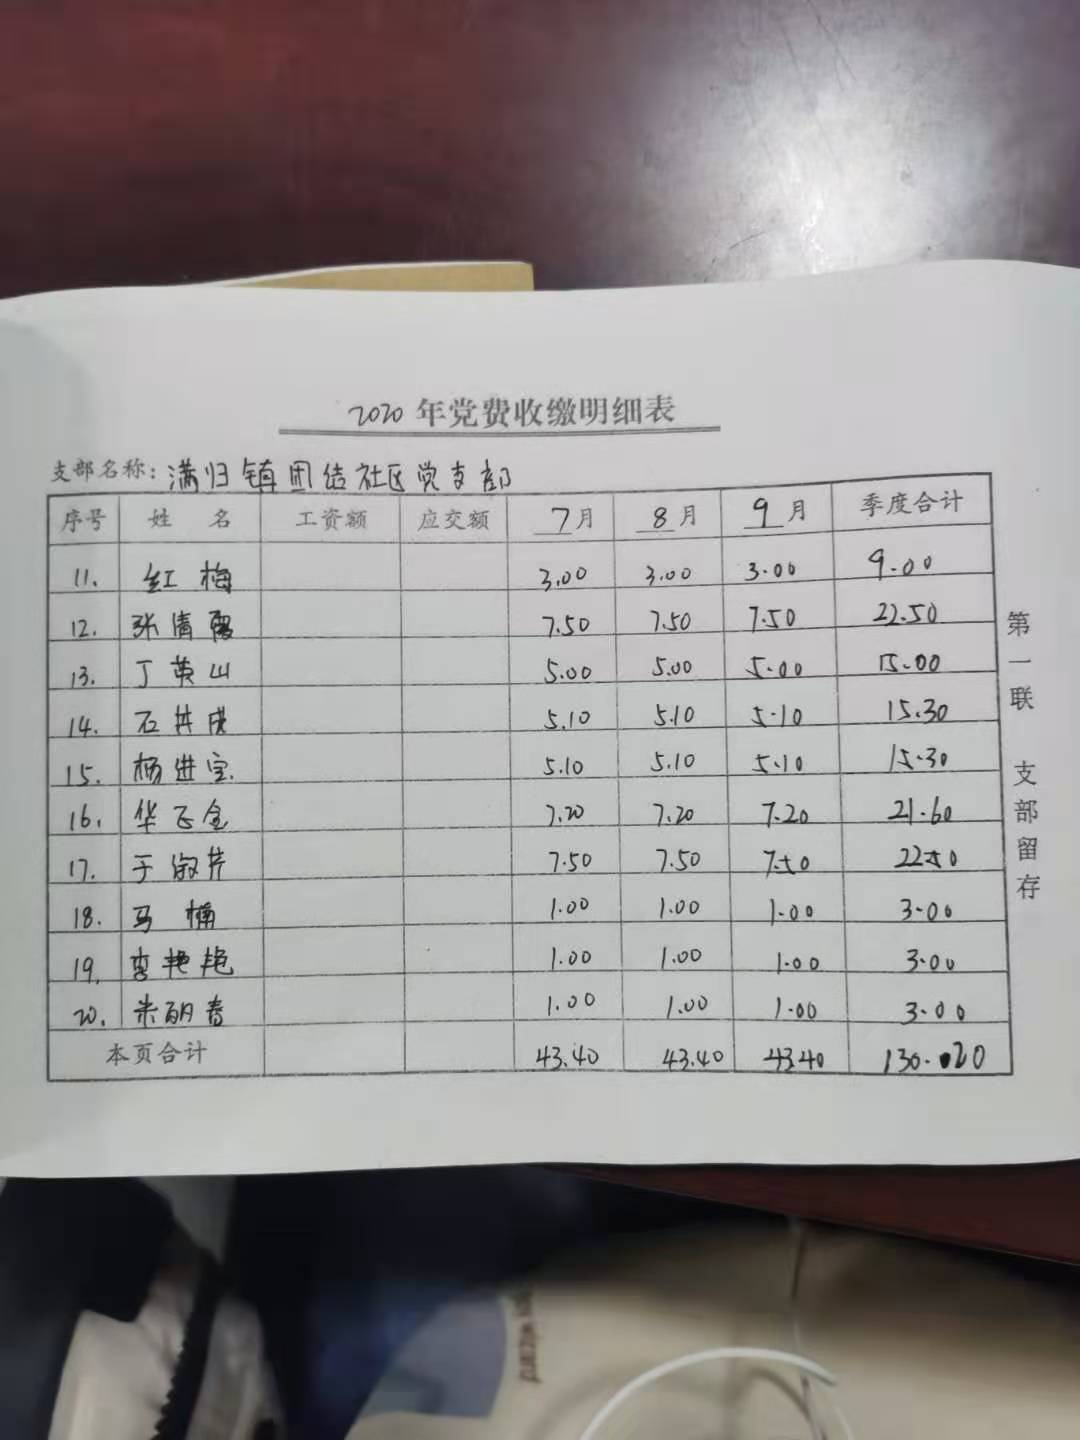 2020 年党费收缴明细表
支部名称：满归镇团结社区党支部
序号 姓 名 工资额 应交额 7月 8月 9月 季度合计
11. 红梅 3.00 3.00 3.00 9.00
12. 张清 7.50 7.50 7.50 22.50
13. 丁英山 5.00 5.00 5.00 15.00
14. 石 5.10 5.10 5.10 15.30
15. 杨进宝 5.10 5.10 5.10 15.30
16. 华正金 7.20 7.20 7.20 21.60
17. 于淑芹 7.50 7.50 7.50 22.50
18. 马楠 1.00 1.00 1.00 3.00
19. 李艳艳 1.00 1.00 1.00 3.00
20. 朱丽春 1.00 1.00 1.00 3.00
本页合计 43.40 43.40 43.40 130.20
第一联 支部留存